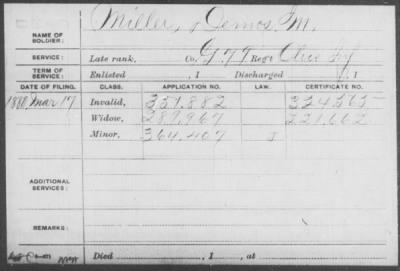 NAME OF SOLDIER: Miller, Demos M.
SERVICE: Late rank, Co. G. 77 Reg't Ohio Inf
TERM OF SERVICE: Enlisted , 1 Discharged , 1
DATE OF FILING. CLASS. APPLICATION NO. LAW. CERTIFICATE NO.
1880 Mar 17 Invalid, 351.882 324565
Widow, 289.967 221,662
Minor, 364,407
ADDITIONAL SERVICES:
REMARKS:
Died , 1 , at